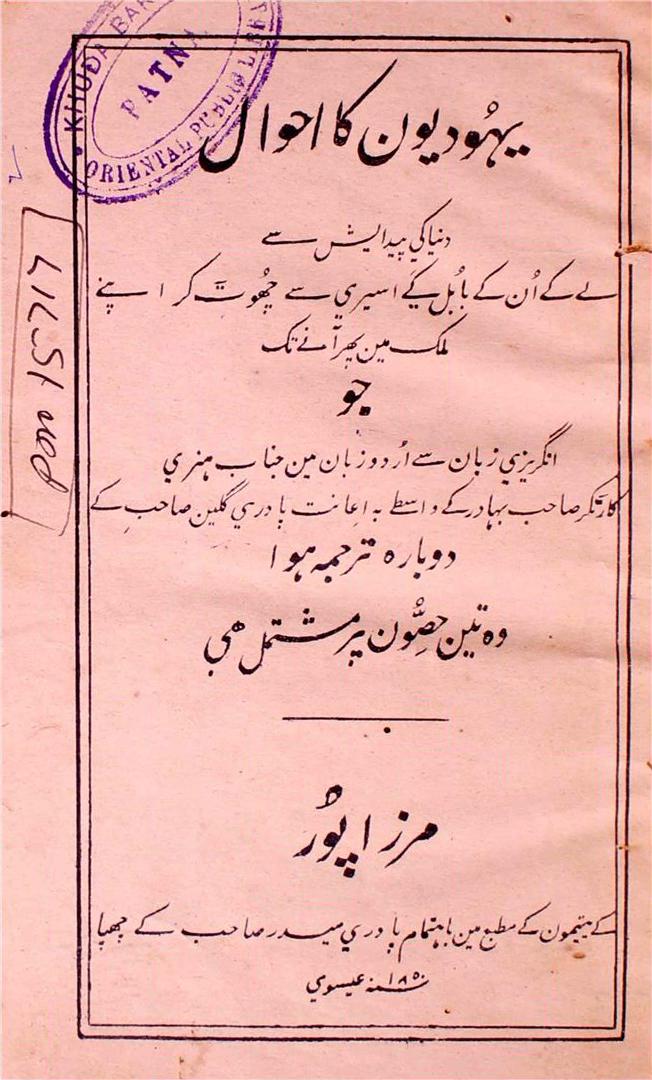 KHUDA BAK
PATNA
ORIENTAL PUBLIC LIBRA
یہُودیون کا احوال
دنیا کی پیدایش سے
لے کے اُن کے بابُل کے اسیري سے چھُوٹ کر اپنے
مُلک مین پھر آنے تک
جو
انگریزي زبان سے اُردو زبان مین جناب ہنري
کارتکر صاحب بہادر کے واسطے بہ اِعانت پادري گلین صاحبِ کے
دوبارہ ترجمہ ہوا
وہ تین حِصّون پر مشتمل ھي
مرزاپُور
کے یتیمون کے مطبع مین باہتمام پادري میدر صاحب کے چھپا
سنہ ۱۸۵۰ عیسوي